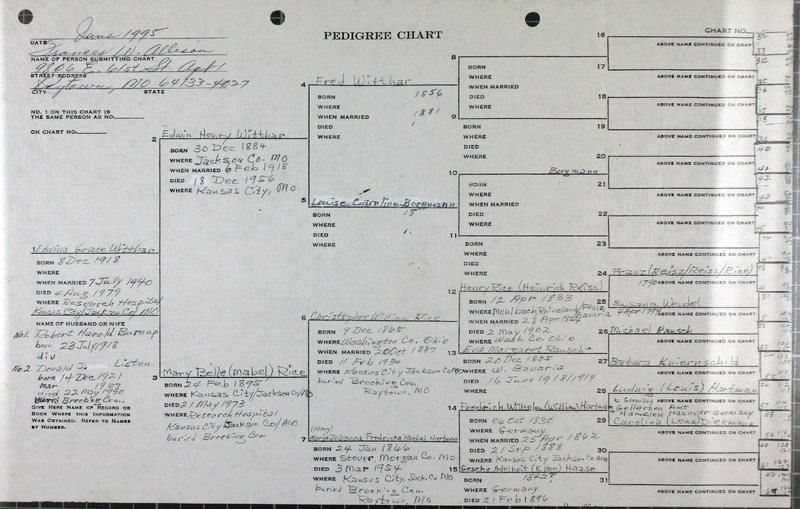 PEDIGREE CHART
CHART NO.
DATE June 1995
Frances W. Allison
NAME OF PERSON SUBMITTING CHART
9806 E. 61st St. Apt 1
STREET ADDRESS
Raytown, MO 64133-4027
CITY STATE
NO. 1 ON THIS CHART IS
THE SAME PERSON AS NO.
ON CHART NO.
1 Edwina Grace Witthar
BORN 8 Dec 1918
WHERE
WHEN MARRIED 7 July 1940
DIED 4 Aug 1979
WHERE Research Hospital
Kansas City/Jackson Co/MO
NAME OF HUSBAND OR WIFE
No1. Robert Harold Burnup
born 23 July 1918
div
No2 Donald J. Liston
born 14 Dec 1921
Mar
died 22 May 1990
Brooking Cem.
GIVE HERE NAME OF RECORD OR
BOOK WHERE THIS INFORMATION
WAS OBTAINED. REFER TO NAMES
BY NUMBER.
2 Edwin Henry Witthar
BORN 30 Dec 1884
WHERE Jackson Co. MO
WHEN MARRIED 6 Feb 1918
DIED 18 Dec 1956
WHERE Kansas City, Mo.
3 Mary Belle (Mabel) Rice
BORN 24 Feb 1895
WHERE Kansas City/Jackson Co/MO
DIED 21 May 1973
WHERE Research Hospital
Kansas City/Jackson Co/MO
buried Brooking Cem
4 Fred Witthar
BORN 1856
WHERE
WHEN MARRIED 1881
DIED
WHERE
5 Louise Caroline Borgmann
BORN 18
WHERE
DIED
WHERE
6 Christopher William Rice
BORN 9 Dec 1865
WHERE Washington Co. Ohio
WHEN MARRIED 20 Oct 1887
DIED 11 Feb 1930
WHERE Kansas City/Jackson Co/MO
buried Brooking Cem.
Raytown, MO
7 (Mary)
Johanna Fredericka Hartman
BORN 24 Jan 1866
WHERE Stover Morgan Co. MO
DIED 3 Mar 1954
WHERE Kansas City, Jack. Co MO
buried Brooking Cem
Raytown, MO
8
BORN
WHERE
WHEN MARRIED
DIED
WHERE
9
BORN
WHERE
DIED
WHERE
10 Borgmann
BORN
WHERE
WHEN MARRIED
DIED
WHERE
11
BORN
WHERE
DIED
WHERE
12 Henry Rice (Heinrich Reiss)
BORN 12 Apr 1833
WHERE Mehlbach Rhineland/Pfalz
Bavaria
WHEN MARRIED
DIED 2 May 1902
WHERE Wash. Co. Ohio
13 Eva Margaret Rausch
BORN 20 Dec 1835
WHERE W. Bavaria
DIED 16 June 1918/1919
WHERE
14 Frederich Wilhelm (William) Hartman
BORN 06 Oct 1830
WHERE Germany
WHEN MARRIED 25 Apr 1862
DIED 21 Sep 1888
WHERE Kansas City Jackson Co MO
15 Gesche Adelheit (Ellen) Haase
BORN 1842?
WHERE Germany
DIED 21 Feb 1896
16
ABOVE NAME CONTINUED ON CHART
17
ABOVE NAME CONTINUED ON CHART
18
ABOVE NAME CONTINUED ON CHART
19
ABOVE NAME CONTINUED ON CHART
20
ABOVE NAME CONTINUED ON CHART
21
ABOVE NAME CONTINUED ON CHART
22
ABOVE NAME CONTINUED ON CHART
23
ABOVE NAME CONTINUED ON CHART
24 Franz (Reisz/Reiss/Rice)
1790 ABOVE NAME CONTINUED ON CHART
25 Susanna Weidel
ABOVE NAME CONTINUED ON CHART
26 Michael Rausch
ABOVE NAME CONTINUED ON CHART
27 Barbara Kniernschild
ABOVE NAME CONTINUED ON CHART
28 Ludwig (Louis) Hartman
b Germany
Hameln Hanover Germany
29 Carolina (Lena) Diekmann
ABOVE NAME CONTINUED ON CHART
30
ABOVE NAME CONTINUED ON CHART
31
ABOVE NAME CONTINUED ON CHART